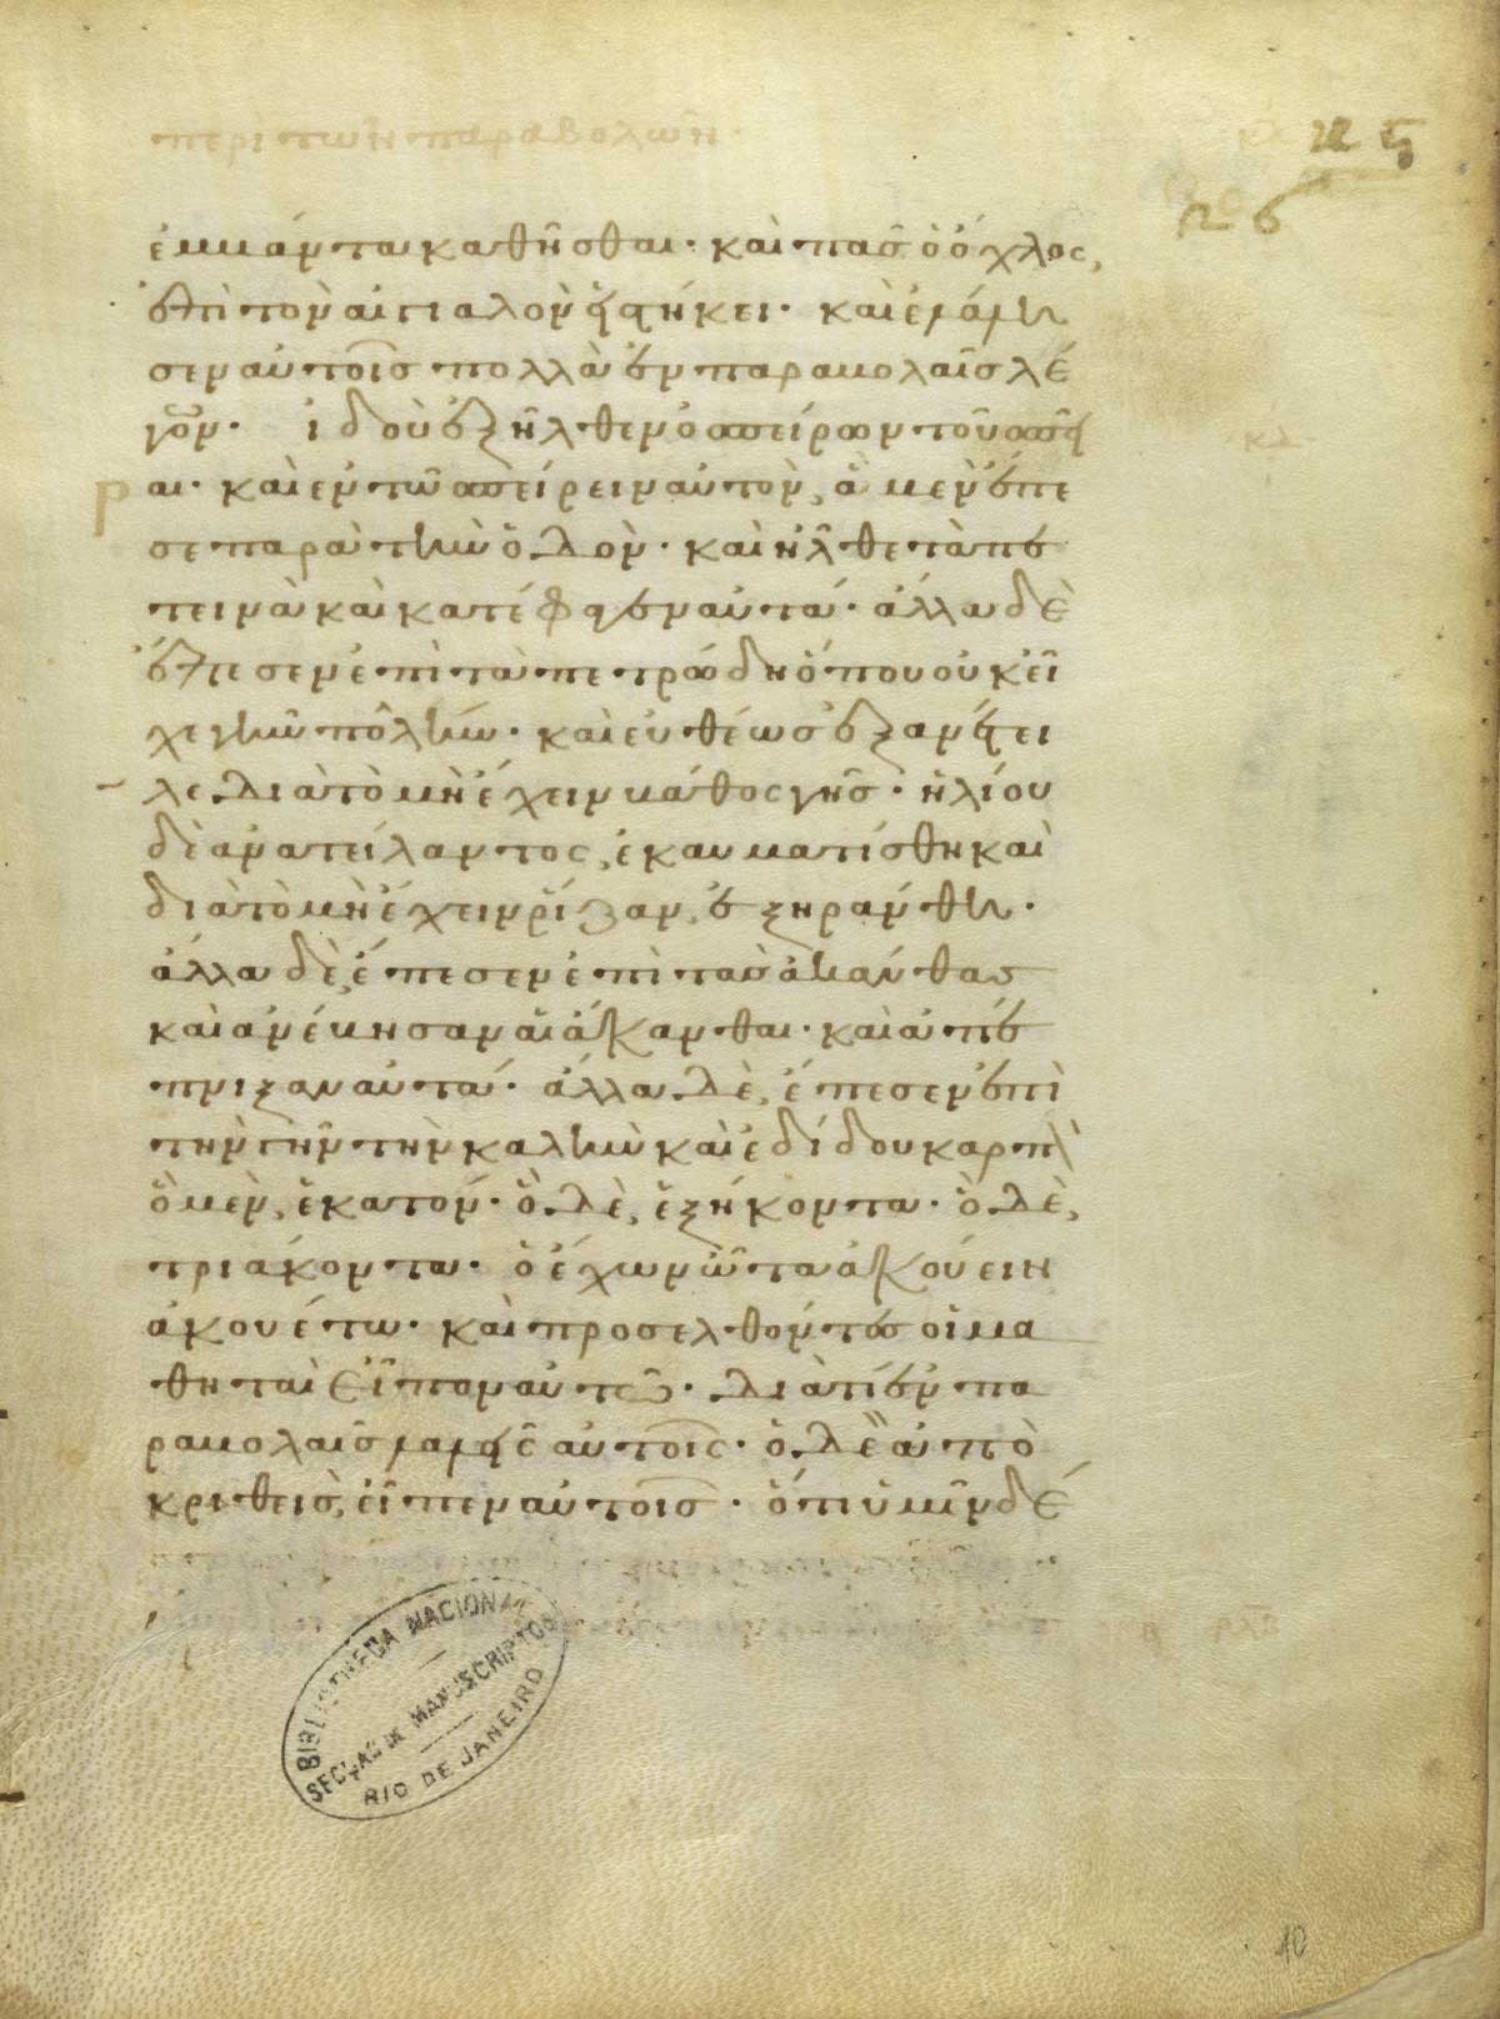 περὶ τῶν παραβολῶν
ἐμβάντα καθῆσθαι· καὶ πᾶς ὁ ὄχλος,
ἐπὶ τὸν αἰγιαλὸν ἑστήκει· καὶ ἐλάλη
σεν αὐτοῖς πολλὰ ἐν παραβολαῖς λέ
γων· ἰδοὺ ἐξῆλθεν ὁ σπείρων τοῦ σπεῖ
ραι· καὶ ἐν τῶ σπείρειν αὐτὸν, ἃ μὲν ἔπε
σε παρὰ τὴν ὁδὸν· καὶ ἦλθε τὰ πε
τεινὰ καὶ κατέφαγεν αὐτά· ἄλλα δὲ
ἔπεσεν ἐπὶ τὰ πετρώδη ὅπου οὐκ εἶ
χε γῆν πολλήν· καὶ εὐθέως ἐξανέτει
λε διὰ τὸ μὴ ἔχειν βάθος γῆς· ἡλίου
δὲ ἀνατείλαντος, ἐκαυματίσθη καὶ
διὰ τὸ μὴ ἔχειν ῥίζαν, ἐξηράνθη·
ἄλλα δὲ, ἔπεσεν ἐπὶ τὰς ἀκάνθας
καὶ ἀνέβησαν αἱ ἄκανθαι· καὶ ἀπέ
πνιξαν αὐτά· ἄλλα δὲ, ἔπεσεν ἐπὶ
τὴν γῆν τὴν καλὴν καὶ ἐδίδου καρπὸ
ὃ μὲν, ἑκατόν· ὃ δὲ, ἑξήκοντα· ὃ δὲ,
τριάκοντα· ὁ ἔχων ὦτα ἀκούειν
ἀκουέτω· καὶ προσελθόντες οἱ μα
θηταὶ εἶπον αὐτῶ· διὰ τί ἐν πα
ραβολαῖς λαλεῖς αὐτοῖς· ὁ δὲ ἀπο
κριθεὶς, εἶπεν αὐτοῖς· ὅτι ὑμῖν δέ
BIBLIOTHECA NACIONAL
SECÇÃO DE MANUSCRIPTOS
RIO DE JANEIRO
10